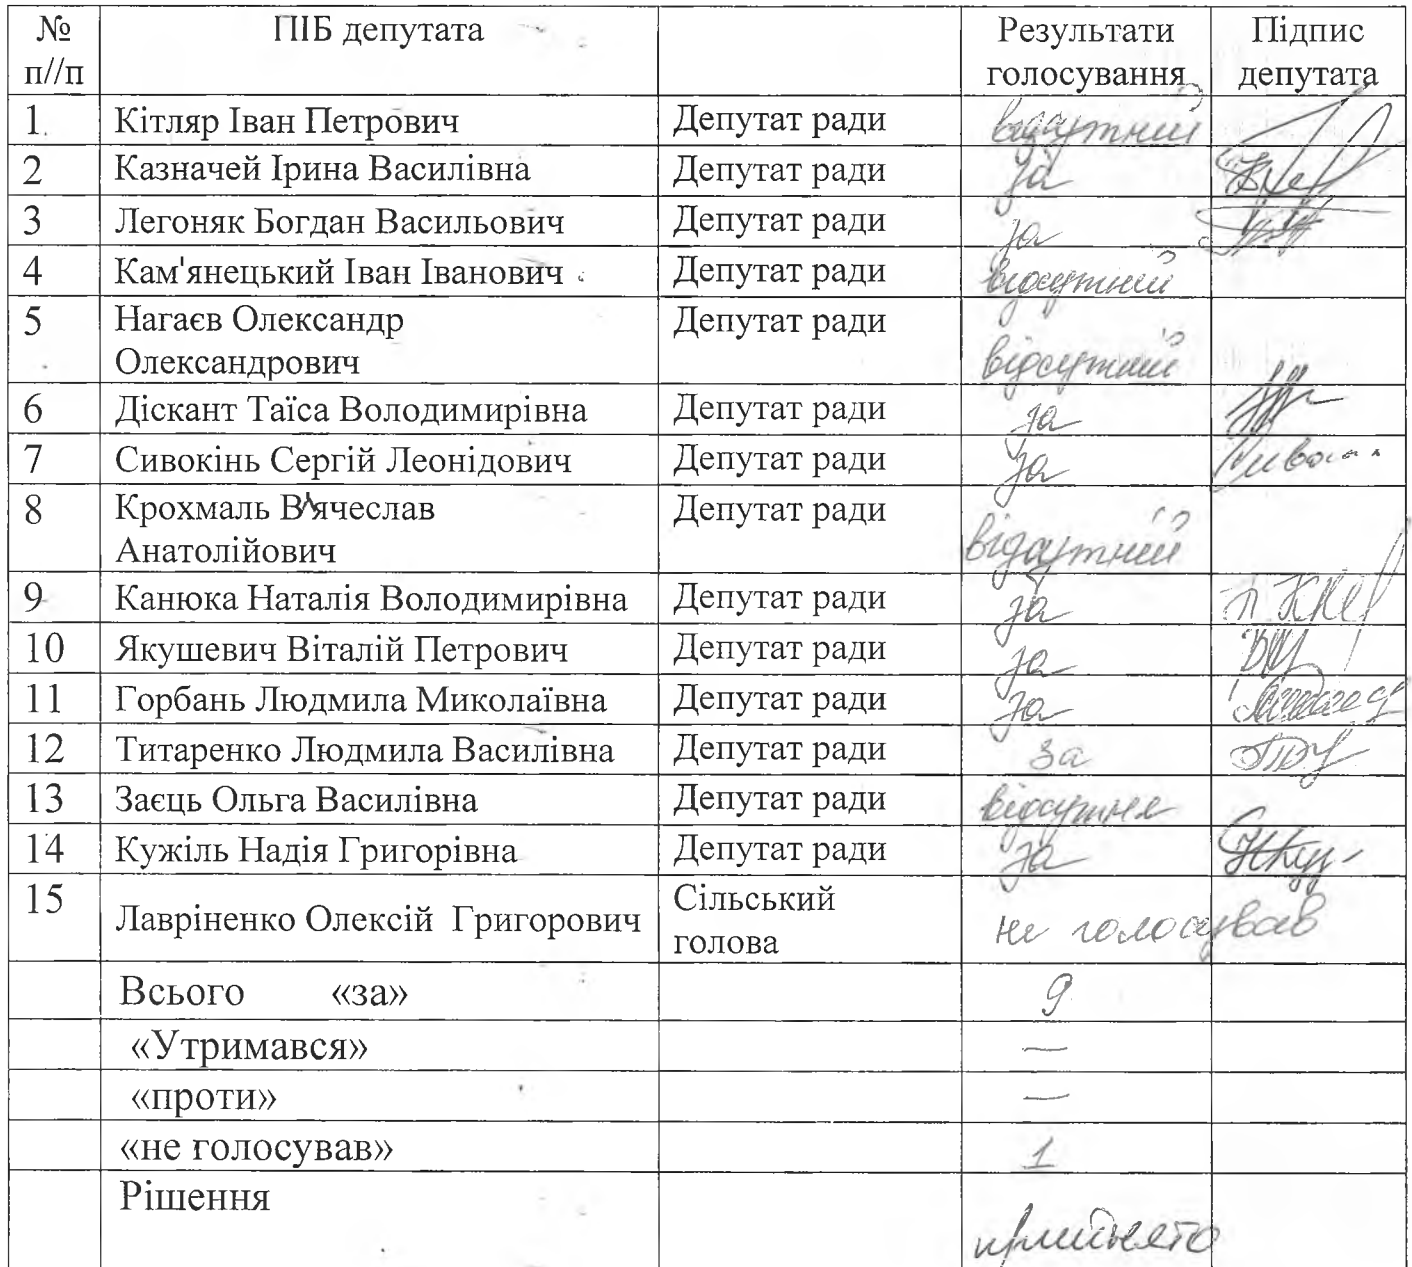 № п//п ПІБ депутата Результати голосування Підпис депутата
1. Кітляр Іван Петрович Депутат ради відсутній
2 Казначей Ірина Василівна Депутат ради за
3 Легоняк Богдан Васильович Депутат ради за
4 Кам'янецький Іван Іванович Депутат ради відсутній
5 Нагаєв Олександр Олександрович Депутат ради відсутній
6 Діскант Таїса Володимирівна Депутат ради за
7 Сивокінь Сергій Леонідович Депутат ради за
8 Крохмаль В'ячеслав Анатолійович Депутат ради відсутній
9 Канюка Наталія Володимирівна Депутат ради за
10 Якушевич Віталій Петрович Депутат ради за
11 Горбань Людмила Миколаївна Депутат ради за
12 Титаренко Людмила Василівна Депутат ради за
13 Заєць Ольга Василівна Депутат ради відсутня
14 Кужіль Надія Григорівна Депутат ради за
15 Лавріненко Олексій Григорович Сільський голова не голосував
Всього «за» 9
«Утримався» —
«проти» —
«не голосував» 1
Рішення прийнято